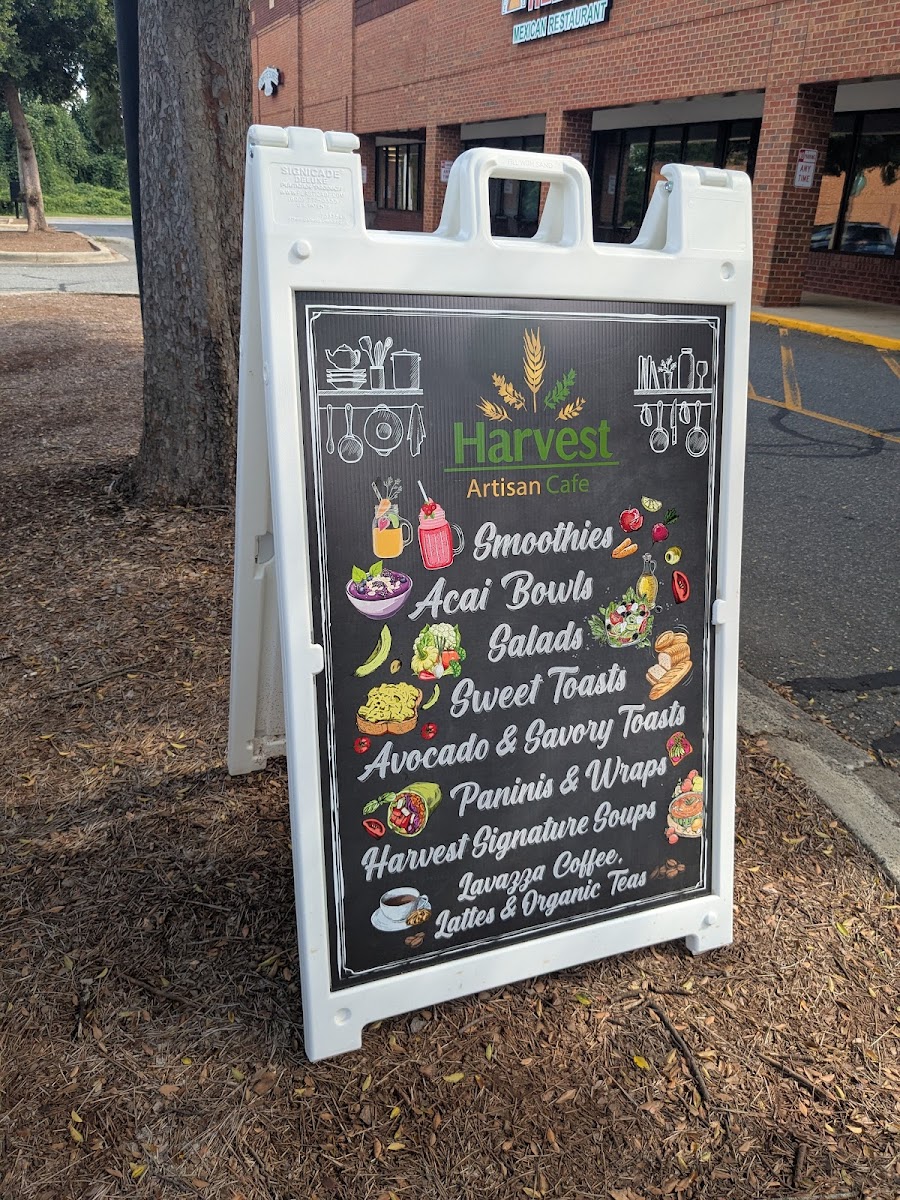 MEXICAN RESTAURANT
SIGNICADE
DELUXE
ANY
TIME
Harvest
Artisan Cafe
Smoothies
Acai Bowls
Salads
Sweet Toasts
Avocado & Savory Toasts
Paninis & Wraps
Harvest Signature Soups
Lavazza Coffee,
Lattes & Organic Teas